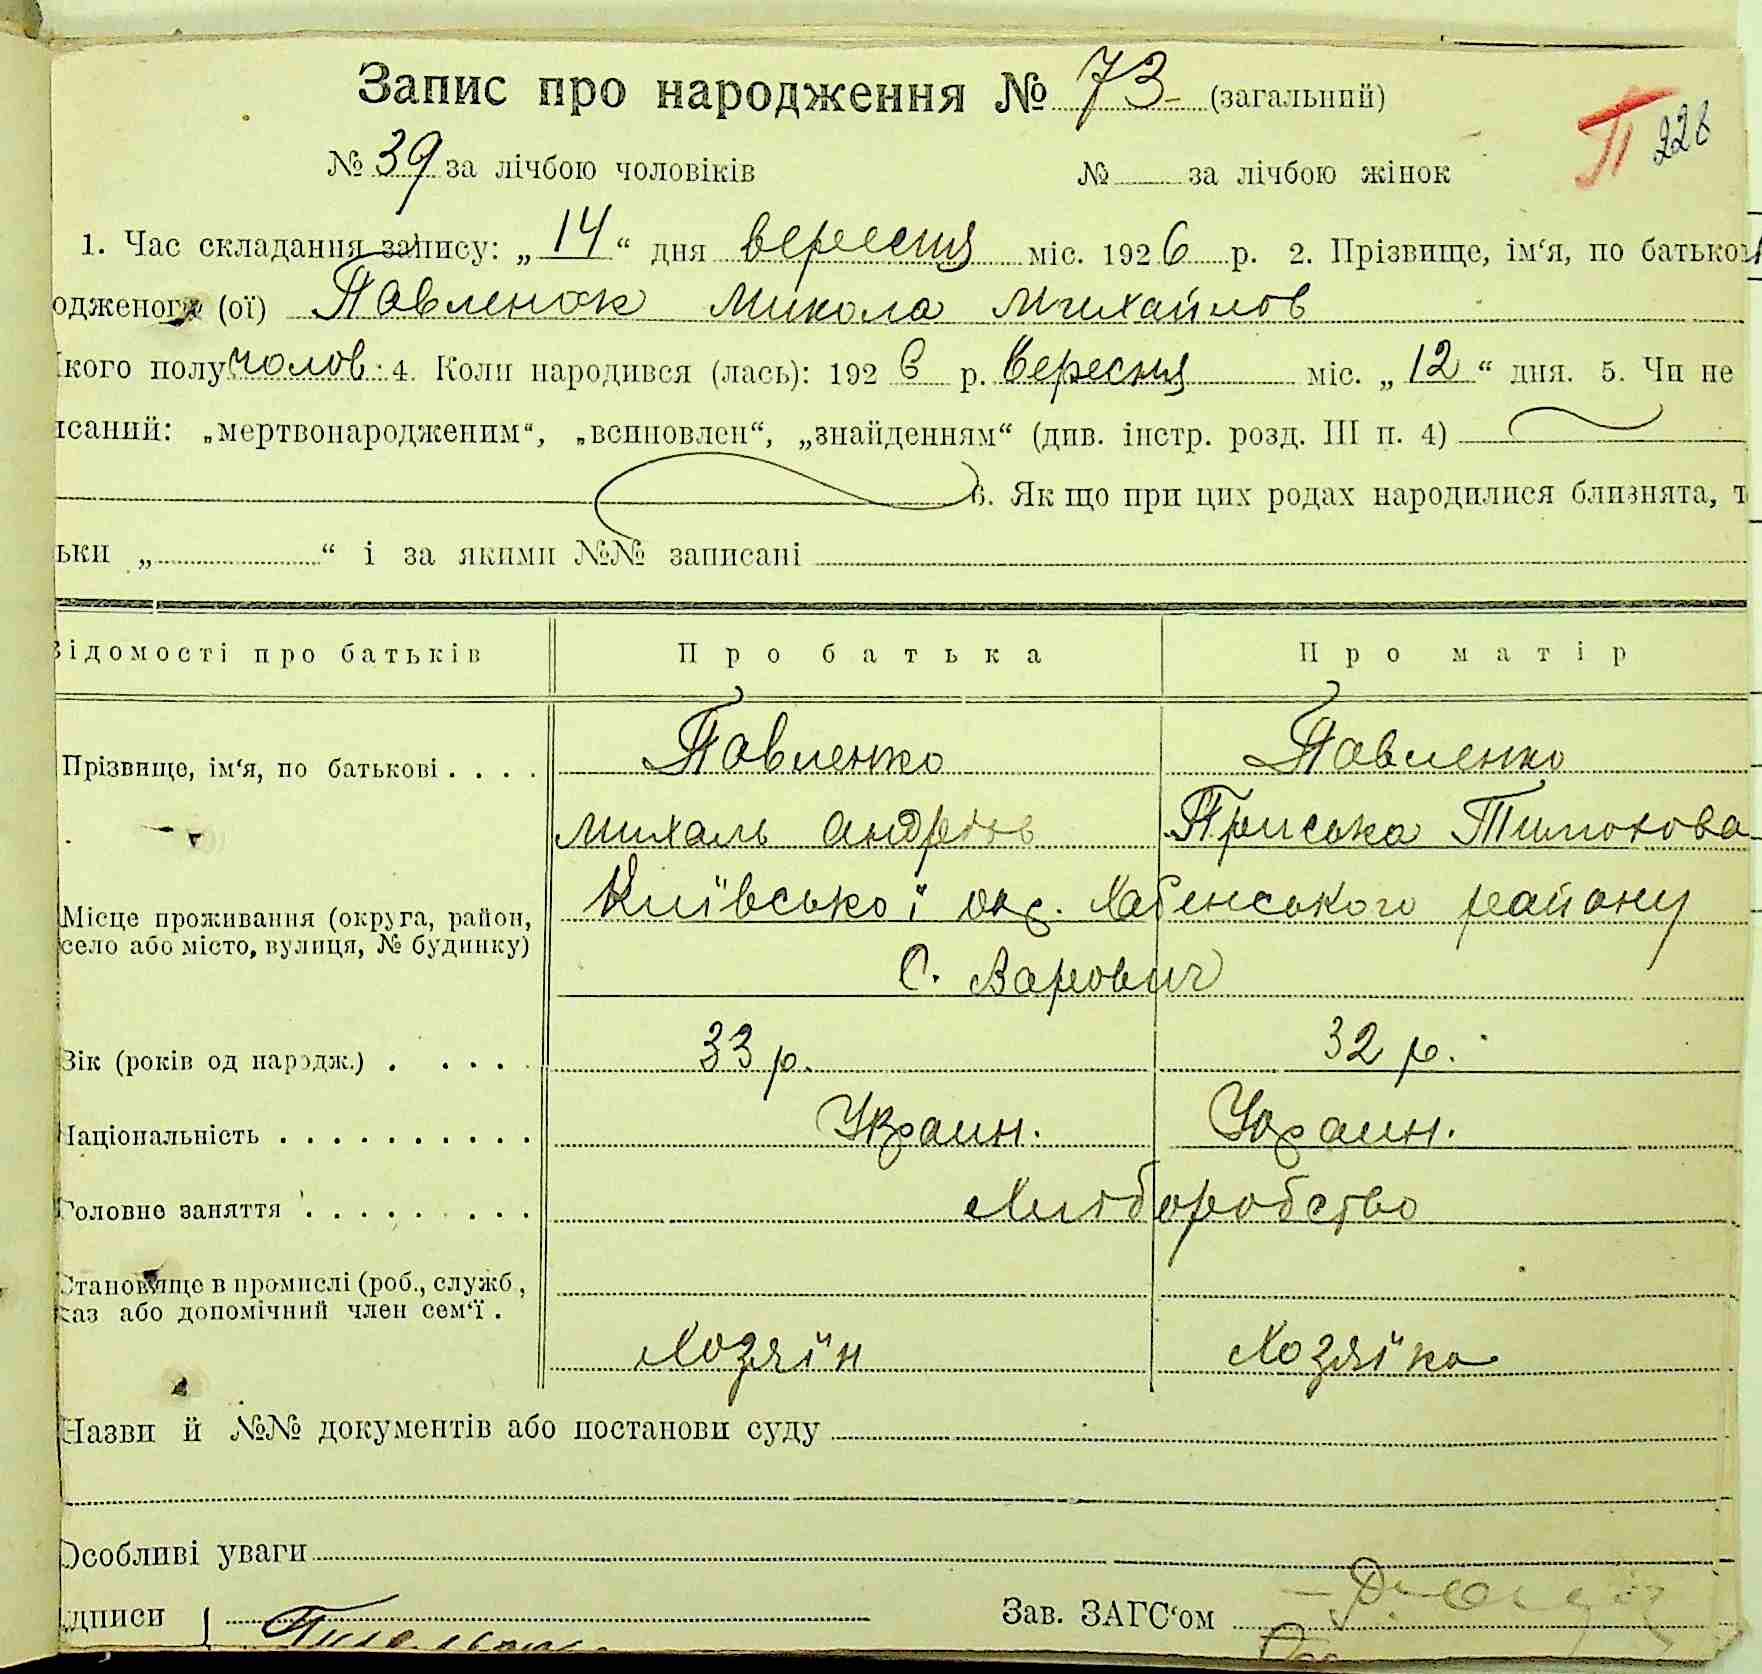 Запис про народження № 73 (загальний)
П 226
№ 39 за лічбою чоловіків № за лічбою жінок
1. Час складання запису: „14“ дня вересня міс. 1926 р. 2. Прізвище, ім‘я, по батькові
одженого (ої) Павленок Микола Михайлов
кого полу чолов. 4. Коли народився (лась): 1926 р. Вересня міс. „12“ дня. 5. Чи не
исаний: „мертвонародженим“, „всиновлен“, „знайденням“ (див. інстр. розд. III п. 4)
6. Як що при цих родах народилися близнята, т
ьки „ “ і за якими №№ записані
Відомості про батьків Про батька Про матір
Прізвище, ім‘я, по батькові . . . . Павленко Павленко
Михаль Андреїв Приська Тимохова
Місце проживання (округа, район, Київської окр. Хабенського району
село або місто, вулиця, № будинку) С. Варович
Вік (років од народж.) . . . . . 33 р. 32 р.
Національність . . . . . . . . . . Украин. Украин.
Головне заняття . . . . . . . . Хліборобство
Становище в промислі (роб., служб,
каз або допомічний член сем‘ї .
Хозяїн Хозяїка
Назви й №№ документів або постанови суду
Особливі уваги
дписи Зав. ЗАГС‘ом